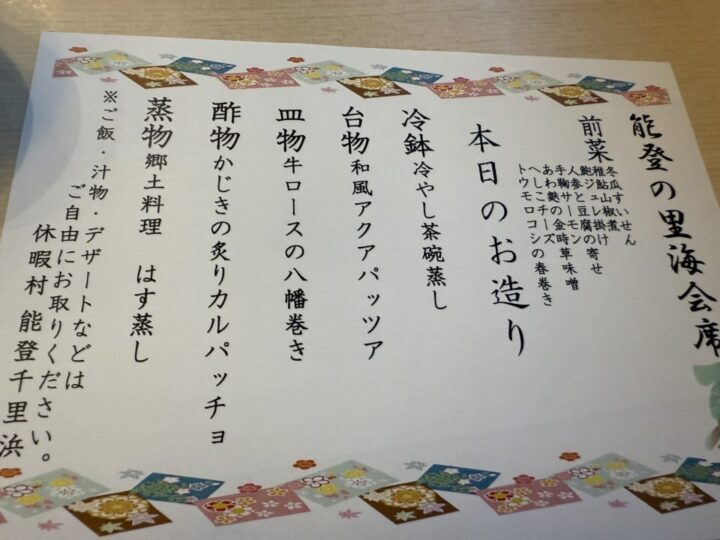 能登の里海会席
前菜
冬瓜すいせん
稚鮎山椒煮
鮑ジュレ掛け
人参と豆腐の寄せ
手鞠サーモン
あわ麩の金時草味噌
へしこチーズ
トウモロコシの春巻き
本日のお造り
冷鉢 冷やし茶碗蒸し
台物 和風アクアパッツア
皿物 牛ロースの八幡巻き
酢物 かじきの炙りカルパッチョ
蒸物 郷土料理 はす蒸し
※ご飯・汁物・デザートなどは
ご自由にお取りください。
休暇村 能登千里浜